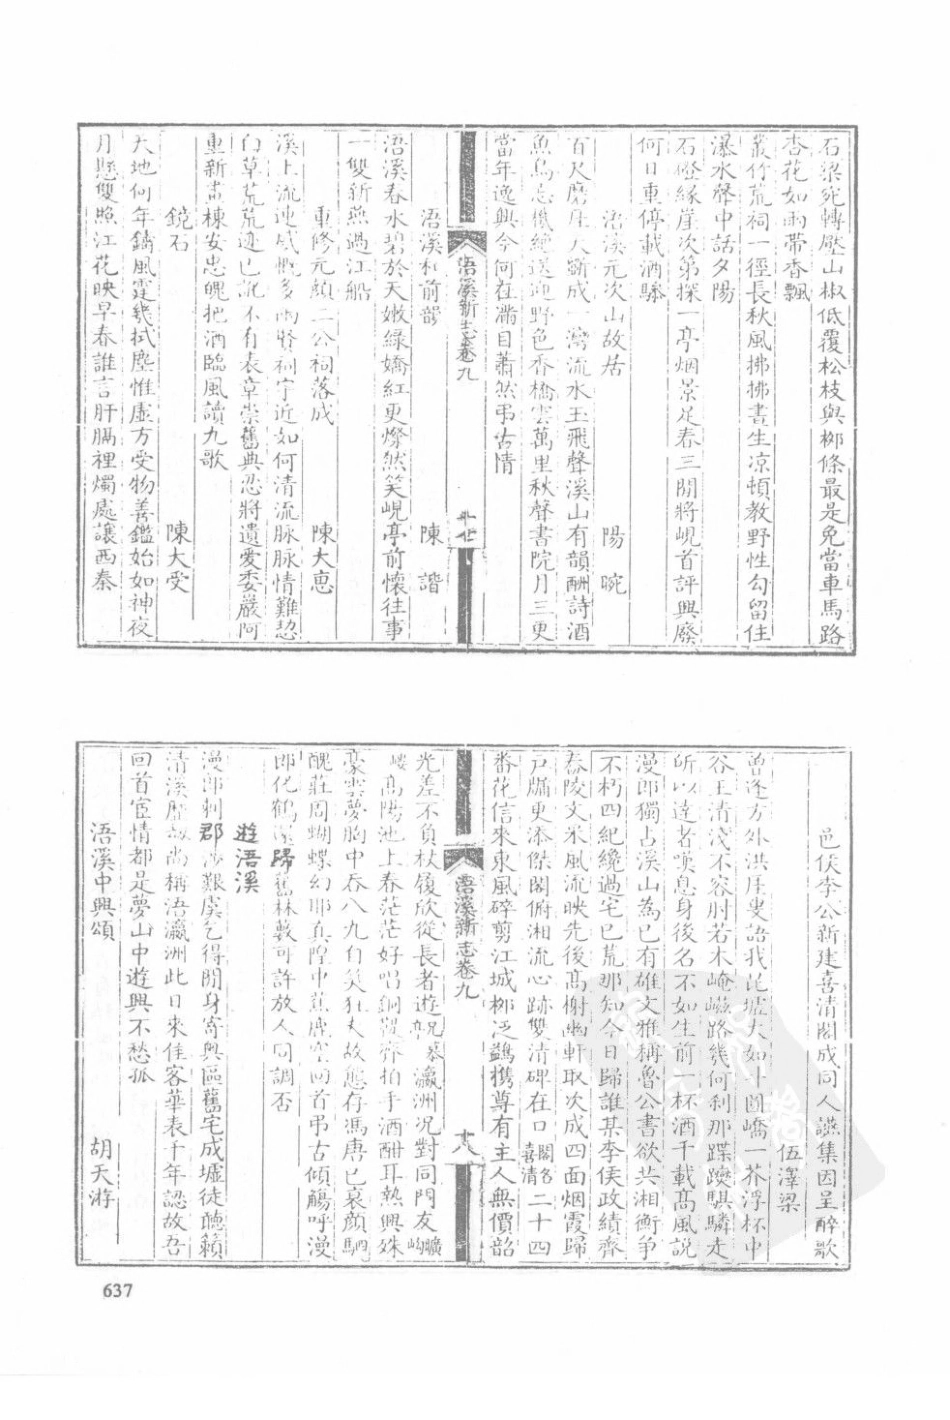 石梁宛轉壓山椒低覆松枝與柳條最是免當車馬路
杏花如雨帶香飄
叢竹荒祠一徑長秋風拂拂晝生凉頓教野性勾留住
瀑水聲中話夕陽
石磴緣崖次第探一亭烟景足春三閒將峴首評興廢
何日車停載酒驂
浯溪元次山故居 陽晼
百尺磨厓人斵成 灣流水玉飛聲溪山有韻酬詩酒
魚鳥忘機總送迎野色香橋雲萬里秋聲書院月三更
當年逸興今何在滿目蕭然弔古情
浯溪新志卷九
十七
浯溪和前韻 陳諧
浯溪春水碧於天嫩綠嬌紅更燦然笑峴亭前懷往事
一雙新燕過江船
重修元顏二公祠落成 陳大惪
溪上流連感慨多兩賢祠宇近如何清流脉脉情難恝
白草荒荒迹已訛不有表章崇舊典忍將遺愛委巖阿
重新畫棟安忠魄把酒臨風讀九歌
鏡石 陳大受
大地何年鑄風霆幾拭塵惟虛方受物善鑑始如神夜
月懸雙照江花映早春誰言肝膈裡燭處讓西秦
邑侯李公新建喜清閣成同人讌集因呈醉歌
伍澤梁
曾逢方外洪厓叟語我崑墟大如斗圓嶠一芥浮杯中
谷王清淺不容肘若木崦嵫路幾何刹那蹀躞騏驎走
所以達者嘆息身後名不如生前一杯酒千載高風說
漫郎獨占溪山為已有雄文雅稱魯公書欲共湘衡爭
不朽四紀纔過宅已荒那知今日歸誰某李侯政績齊
舂陵文采風流映先後高榭幽軒取次成四面烟霞歸
戸牖更添傑閣俯湘流心跡雙清碑在口閣名喜清二十四
番花信來東風碎剪江城柳泛鷁携尊有主人無價韶
浯溪新志卷九
十八
光差不負杖履欣從長者遊 瀛洲況對同門友曠
高陽池上春茫茫好唱銅鞮齊拍手酒酣耳熱興殊
豪雲夢胸中吞八九自笑狂夫故態存馮唐已衰顔駟
醜莊周蝴蝶幻耶真隍中蕉鹿空回首弔古傾觴呼漫
郎化鶴 歸舊林藪可許放人同調否
遊浯溪
漫郎刺郡 艱虞乞得閒身寄與區舊宅成墟徒聽籟
清溪歷 尚稱浯瀛洲此日來佳客華表千年認故吾
回首宦情都是夢山中遊興不愁孤
浯溪中興頌 胡天游
637